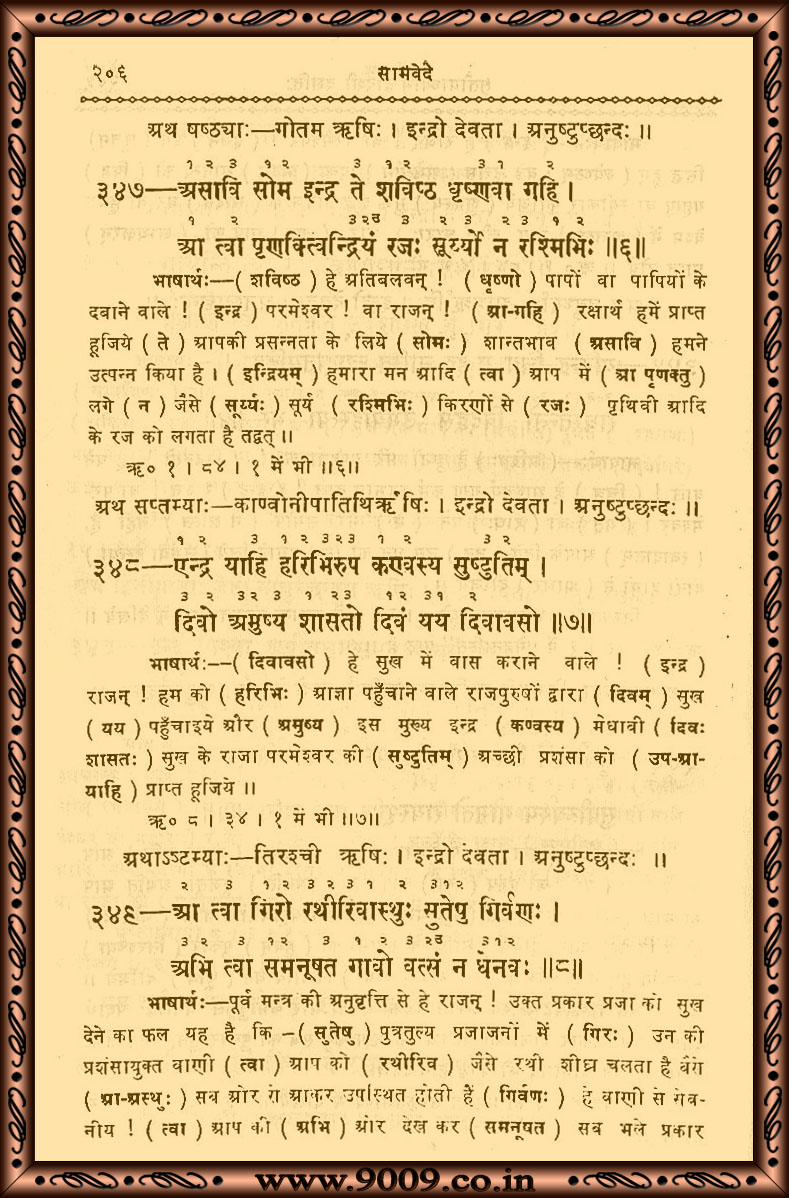 २०६ सामवेदे
अथ षष्ठ्याः—गोतम ऋषिः । इन्द्रो देवता । अनुष्टुप्छन्दः ॥
१ २ ३ १ २ ३ १ २ ३ १ २
३४७—असावि सोम इन्द्र ते शविष्ठ धृष्णवा गहि ।
१ २ ३ २उ ३ २ ३ २ ३ १ २
आ त्वा पृणक्त्विन्द्रियं रजः सूर्य्यो न रश्मिभिः ॥६॥
भाषार्थः—( शविष्ठ ) हे अतिबलवन् ! ( धृष्णो ) पापों वा पापियों के
दबाने वाले ! ( इन्द्र ) परमेश्वर ! वा राजन् ! ( आ-गहि ) रक्षार्थ हमें प्राप्त
हूजिये ( ते ) आपकी प्रसन्नता के लिये ( सोमः ) शान्तभाव ( असावि ) हमने
उत्पन्न किया है । ( इन्द्रियम् ) हमारा मन आदि ( त्वा ) आप में ( आ पृणक्तु )
लगे ( न ) जैसे ( सूर्य्यः ) सूर्य ( रश्मिभिः ) किरणों से ( रजः ) पृथिवी आदि
के रज को लगता है तद्वत् ॥
ऋ० १ । ८४ । १ में भी ॥६॥
अथ सप्तम्याः—काण्वोनीपातिथिर्ऋषिः । इन्द्रो देवता । अनुष्टुप्छन्दः ॥
१ २ ३ १ २ ३२३ १ २ ३ २
३४८—एन्द्र याहि हरिभिरुप कण्वस्य सुष्टुतिम् ।
३ २ ३२ ३ १ २३ १२ ३१ २
दिवो अमुष्य शासतो दिवं यय दिवावसो ॥७॥
भाषार्थः—( दिवावसो ) हे सुख में वास कराने वाले ! ( इन्द्र )
राजन् ! हम को ( हरिभिः ) आज्ञा पहुँचाने वाले राजपुरुषों द्वारा ( दिवम् ) सुख
( यय ) पहुँचाइये और ( अमुष्य ) इस मुख्य इन्द्र ( कण्वस्य ) मेधावी ( दिवः
शासतः ) सुख के राजा परमेश्वर की ( सुष्टुतिम् ) अच्छी प्रशंसा को ( उप-आ-
याहि ) प्राप्त हूजिये ॥
ऋ० ८ । ३४ । १ में भी ॥७॥
अथाऽष्टम्याः—तिरश्ची ऋषिः । इन्द्रो देवता । अनुष्टुप्छन्दः ॥
२ ३ १२ ३ २ ३ १ २ ३१२
३४९—आ त्वा गिरो रथीरिवास्थुः सुतेषु गिर्वणः ।
३ २ ३ १२ ३ १ २ ३ २उ ३१२
अभि त्वा समनूषत गावो वत्सं न धेनवः ॥८॥
भाषार्थः—पूर्व मन्त्र की अनुवृत्ति से हे राजन् ! उक्त प्रकार प्रजा को सुख
देने का फल यह है कि -( सुतेषु ) पुत्रतुल्य प्रजाजनों में ( गिरः ) उन की
प्रशंसायुक्त वाणी ( त्वा ) आप को ( रथीरिव ) जैसे रथी शीघ्र चलता है वैसे
( आ-अस्थुः ) सब ओर से आकर उपस्थित होती हैं ( गिर्वणः ) हे वाणी से सेव-
नीय ! ( त्वा ) आप की ( अभि ) ओर देख कर ( समनूषत ) सब भले प्रकार
www.9009.co.in